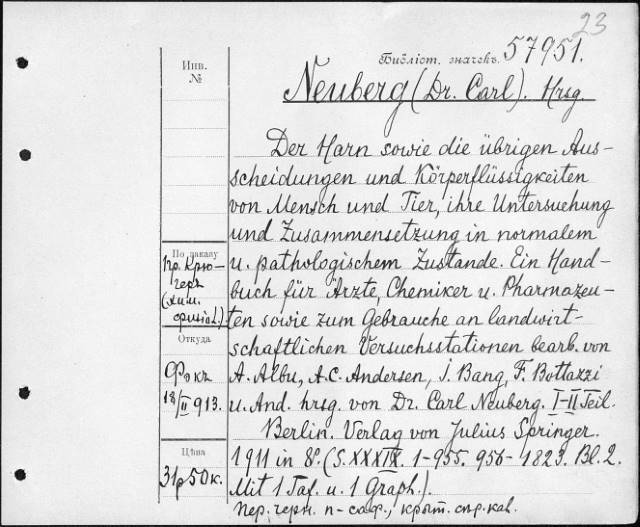 23
Библіот. значекъ. 57951.
Инв.
№
Neuberg (Dr. Carl). Hrsg.
Der Harn sowie die übrigen Aus-
scheidungen und Körperflüssigkeiten
von Mensch und Tier, ihre Untersuchung
und Zusammensetzung in normalem
u. pathologischem Zustande. Ein Hand-
buch für Ärzte, Chemiker u. Pharmazeu-
ten sowie zum Gebrauche an landwirt-
schaftlichen Versuchsstationen bearb. von
A. Albu, A.C. Andersen, J. Bang, F. Bottazzi
u. And. hrsg. von Dr. Carl Neuberg. I-II Teil.
Berlin. Verlag von Julius Springer.
1911 in 8°. (S. XXXIX. 1-955. 956-1823. Bl. 2.
Mit 1 Taf. u. 1 Graph.).
Пер. черн. п-саф., крыт. сѣр. кав.
По заказу
пр. Крю-
геръ
(хим.
физіол.)
Откуда
Фокъ
18/II 913.
Цѣна
31р 50к.